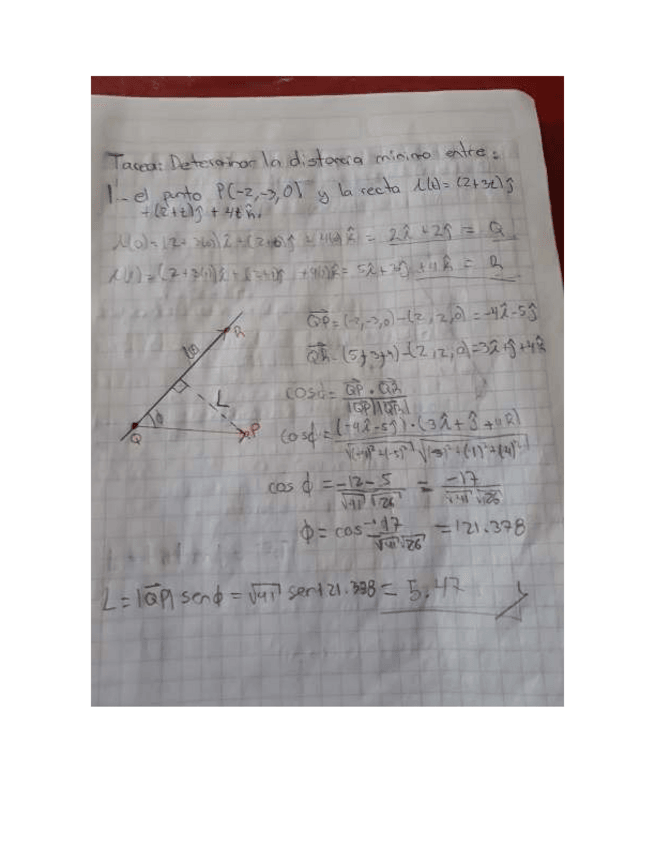 Tarea: Determinar la distancia minima entre:
1.- el punto P(-2,-3,0) y la recta r(t)=(2+3t)î
+(2+t)ĵ + 4t k̂.
r(0)=(2+3(0))î+(2+0)ĵ+4(0)k̂ = 2î+2ĵ = Q
r(1)=(2+3(1))î+(2+1)ĵ +4(1)k̂= 5î+3ĵ+4k̂ = R
QP=(-2,-3,0)-(2,2,0)=-4î-5ĵ
QR=(5,3,4)-(2,2,0)=3î+ĵ+4k̂
cosϕ= QP • QR / |QP||QR|
cosϕ= (-4î-5ĵ)•(3î+ĵ+4k̂) / √(-4)²+(-5)² √(3)²+(1)²+(4)²
cos ϕ = -12-5 / √41 √26 = -17 / √41 √26
ϕ= cos⁻¹ -17 / √41 √26 =121.378
R
L
ϕ
Q
P
L= |QP| senϕ = √41 sen121.378= 5.47